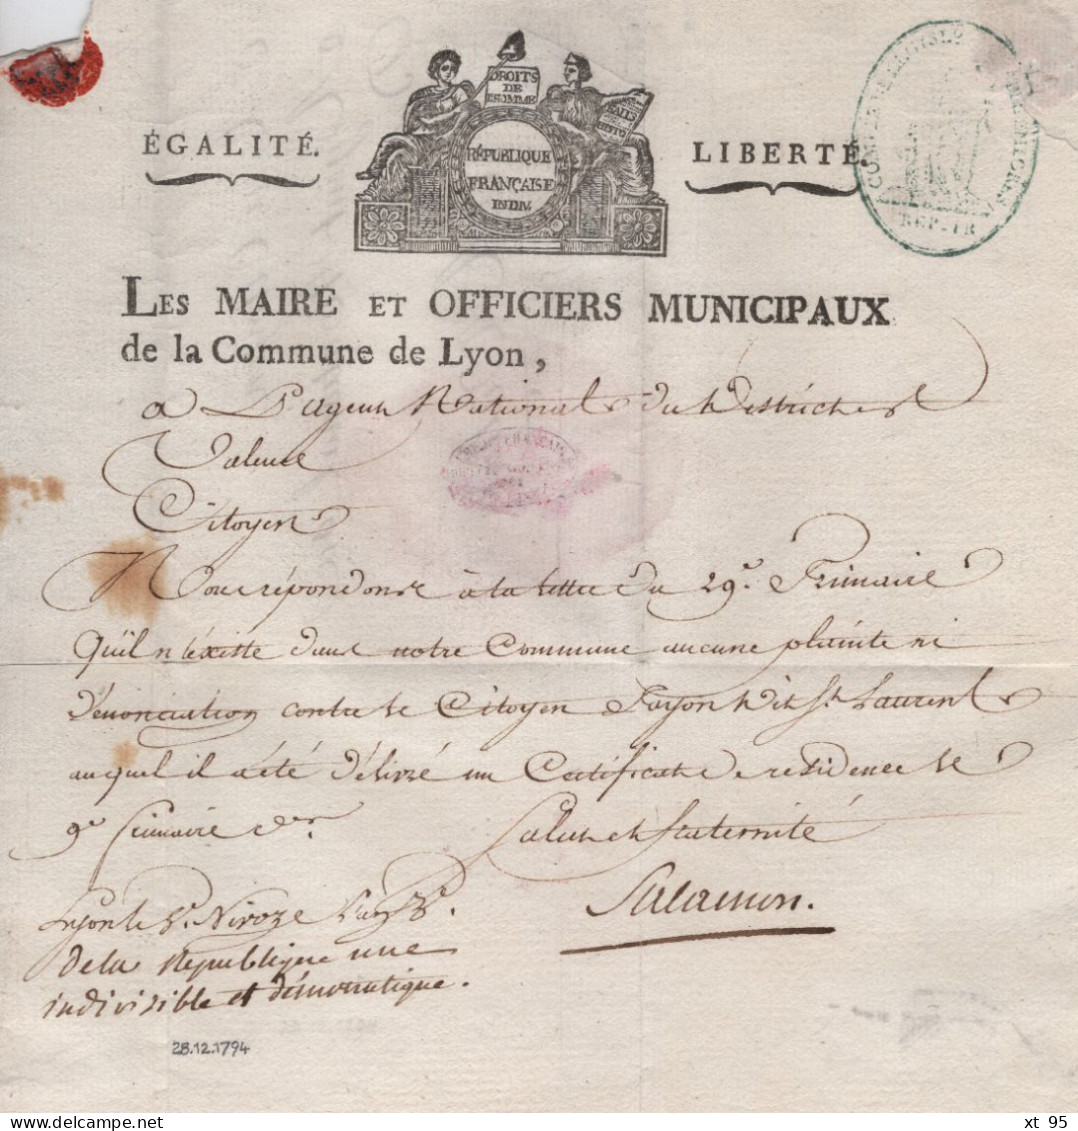 DROITS
DE
L'HOMME
ÉGALITÉ.
LIBERTÉ.
RÉPUBLIQUE
FRANÇAISE
INDIV.
REP. FR
LES MAIRE ET OFFICIERS MUNICIPAUX
de la Commune de Lyon,
a L'agent National du District de
Valence
Citoyen
Nous répondons à ta lettre du 29e. Frimaire
Qu'il n'éxiste dans notre Commune aucune plainte ni
dénonciation contre le Citoyen Fayon dit St. Laurent
auquel il a été délivré un Certificat de residence le
9e frimaire der.
Salut et fraternité
Salamon.
Lyon le 8e. Nivoze L'an 3e.
de la République une
indivisible et démocratique.
28.12.1794
xt 95